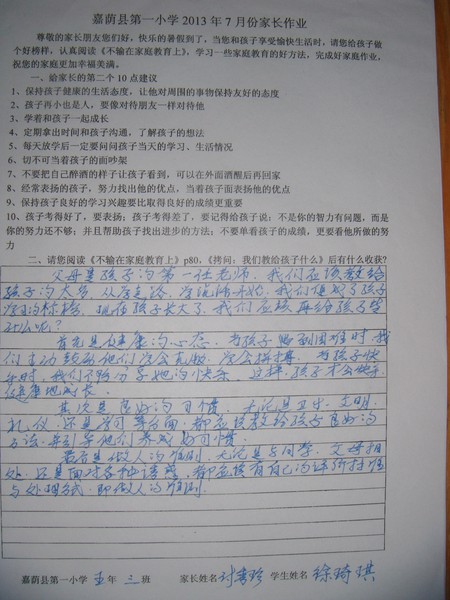 嘉荫县第一小学2013年7月份家长作业
尊敬的家长朋友您们好，快乐的暑假到了，当您和孩子享受愉快生活时，请您给孩子做
个好榜样，认真阅读《不输在家庭教育上》，学习一些家庭教育的好方法，完成好家庭作业，
祝您的家庭更加幸福美满。
一、给家长的第二个10点建议
1、保持健康的生活态度，让他对周围的事物保持友好的态度
2、孩子再小也是人，要像对待朋友一样对待他
3、学着和孩子一起成长
4、定期拿出时间和孩子沟通，了解孩子的想法
5、每天放学后一定要问问孩子当天的学习、生活情况
6、切不可当着孩子的面吵架
7、不要把自己醉酒的样子让孩子看到，可以在外面酒醒后再回家
8、经常表扬的孩子，努力找出他的优点，当着孩子面表扬他的优点
9、保持孩子良好的学习兴趣要比取得良好的成绩更重要
10、孩子考得好了，要表扬；孩子考得差了，要记得给孩子说：不是你的智力有问题，而是
你的努力还不够；并且帮助孩子找出进步的方法；不要单看孩子的成绩，更要看他所做的努
力
二、请您阅读《不输在家庭教育上》p80，《拷问：我们教给孩子什么》后有什么收获？
父母是孩子的第一任老师，我们应该教给
孩子的太多，从学走路、学说话开始，我们便成了孩子
学习的标榜，现在孩子长大了，我们应该再给孩子些
什么呢？
首先是健康的心态，当孩子遇到困难时，我
们主动鼓励他们学会真助、学会拼搏，当孩子快
乐时，我们不防分享她的快乐，这样，孩子才会快乐
健康地成长。
其次是良好的习惯，无论是卫生、文明、
礼仪，还是学习等方面，都应该教给孩子良好的
方法，并引导他们养成好习惯。
最后是做人的准则，无论是与同学、父母相
处，还是面对各种诱惑，都应该有自己的评价标准
与处理方式，即做人的准则。
嘉荫县第一小学 五 年 三 班 家长姓名 学生姓名 徐琦琪